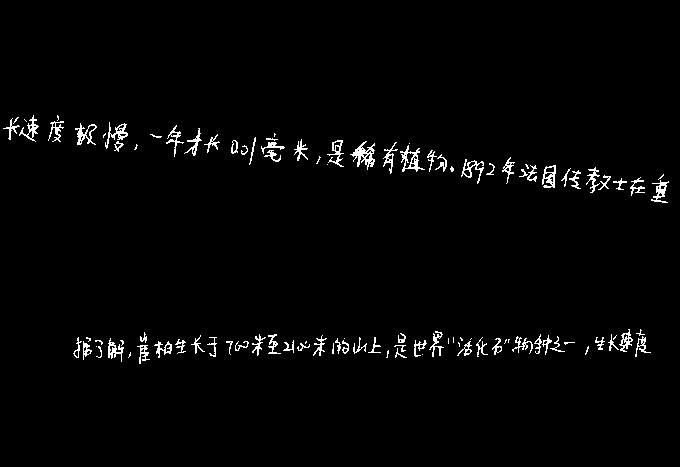 长速度极慢，一年才长0.01毫米，是稀有植物。1892年法国传教士在重
据了解，崖柏生长于700米至2100米的山上，是世界“活化石”物种之一，生长速度